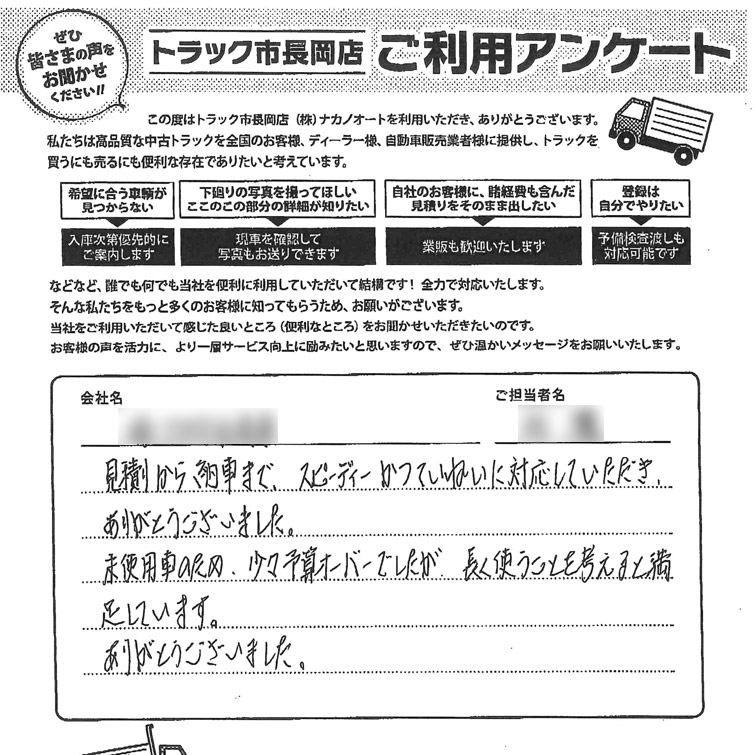 ぜひ
皆さまの声を
お聞かせ
ください!!
トラック市長岡店 ご利用アンケート
この度はトラック市長岡店（株）ナカノオートを利用いただき、ありがとうございます。
私たちは高品質な中古トラックを全国のお客様、ディーラー様、自動車販売業者様に提供し、トラックを
買うにも売るにも便利な存在でありたいと考えています。
希望に合う車輌が
見つからない
入庫次第優先的に
ご案内します
下廻りの写真を撮ってほしい
ここのこの部分の詳細が知りたい
現車を確認して
写真もお送りできます
自社のお客様に、諸経費も含んだ
見積りをそのまま出したい
業販も歓迎いたします
登録は
自分でやりたい
予備検査渡しも
対応可能です
などなど、誰でも何でも当社を便利に利用していただいて結構です！全力で対応いたします。
そんな私たちをもっと多くのお客様に知ってもらうため、お願いがございます。
当社をご利用いただいて感じた良いところ（便利なところ）をお聞かせいただきたいのです。
お客様の声を活力に、より一層サービス向上に励みたいと思いますので、ぜひ温かいメッセージをお願いいたします。
会社名 ご担当者名
見積りから納車まで、スピーディーかつていねいに対応していただき、
ありがとうございました。
未使用車のため、少々予算オーバーでしたが、長く使うことを考えると満
足しています。
ありがとうございました。